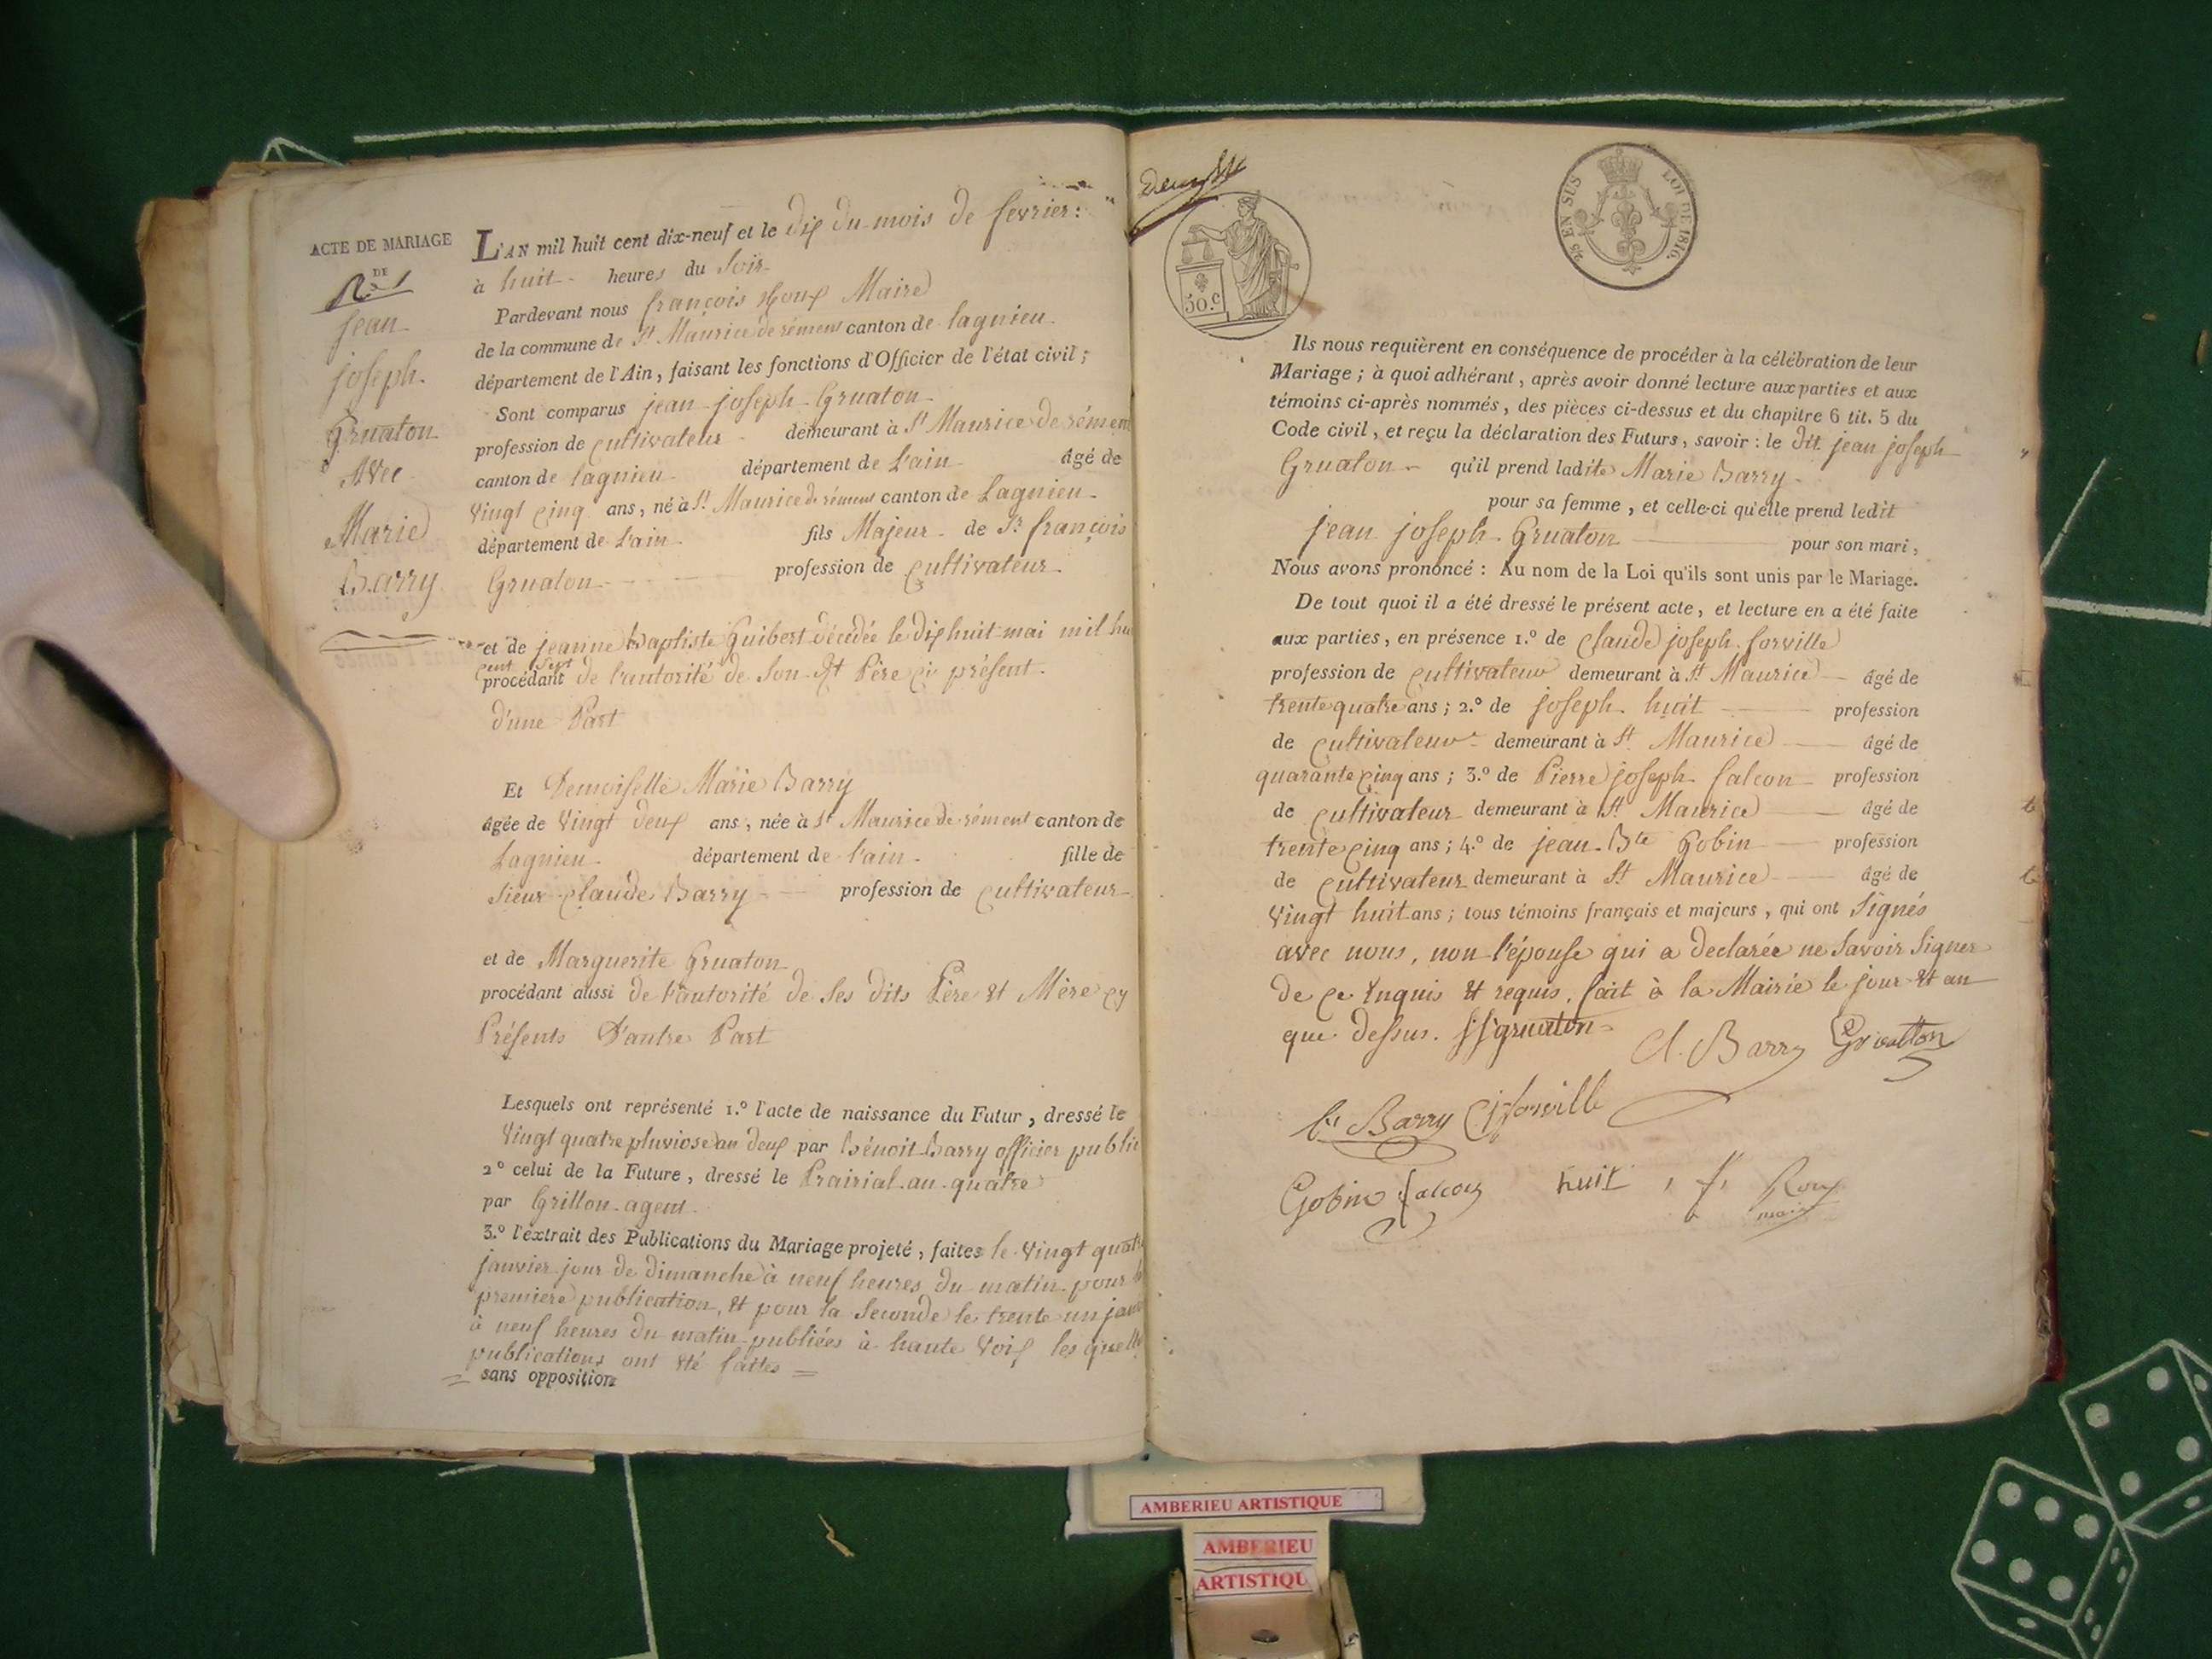 ACTE DE MARIAGE
DE
N.º 1
jean
joseph
Gruaton
Avec
Marie
Barry
L'AN mil huit cent dix-neuf et le dix du mois de fevrier :
à huit heures du soir
Pardevant nous françois Roux Maire
de la commune de St Maurice de rémens canton de lagnieu
département de l'Ain, faisant les fonctions d'Officier de l'état civil ;
Sont comparus jean joseph Gruaton
profession de cultivateur demeurant à St Maurice de rémens
canton de lagnieu département de L'ain âgé de
vingt cinq ans, né à St Maurice de rémens canton de Lagnieu
département de L'ain fils Majeur de Sr françois
Gruaton profession de cultivateur
et de jeanne Baptiste Guibert décédée le dix huit mai mil hu
cent sept
procédant de l'autorité de son dt Père ci présent
d'une Part
Et Demoiselle Marie Barry
âgée de vingt deux ans, née à St Maurice de rémens canton de
Lagnieu département de l'ain fille de
sieur Claude Barry profession de cultivateur
et de Marguerite Gruaton
procédant aussi de l'autorité de ses dits Père et Mère cy
Présents D'autre Part
Lesquels ont représenté 1.º l'acte de naissance du Futur, dressé le
vingt quatre pluviose an deux par Bénoit Barry officier public
2º celui de la Future, dressé le Prairial an quatre
par Grillon agent
3.º l'extrait des Publications du Mariage projeté, faites le vingt quatre
janvier jour de dimanche à neuf heures du matin pour la
premiere publication, et pour la seconde le trente un janv
à neuf heures du matin publiées à haute voix les quelles
publications ont été faites =
= sans opposition
50.c
25 EN SUS LOI DE 1816.
Ils nous requièrent en conséquence de procéder à la célébration de leur
Mariage ; à quoi adhérant, après avoir donné lecture aux parties et aux
témoins ci-après nommés, des pièces ci-dessus et du chapitre 6 tit. 5 du
Code civil, et reçu la déclaration des Futurs, savoir : le dit jean joseph
Gruaton qu'il prend ladite Marie Barry
pour sa femme, et celle-ci qu'elle prend ledit
jean joseph Gruaton pour son mari,
Nous avons prononcé : Au nom de la Loi qu'ils sont unis par le Mariage.
De tout quoi il a été dressé le présent acte, et lecture en a été faite
aux parties, en présence 1.º de Claude joseph forville
profession de cultivateur demeurant à St Maurice âgé de
trente quatre ans ; 2.º de joseph huit profession
de cultivateur demeurant à St Maurice âgé de
quarante cinq ans ; 3.º de Pierre joseph falcon profession
de cultivateur demeurant à St Maurice âgé de
trente cinq ans ; 4.º de jean Bte Gobin profession
de cultivateur demeurant à St Maurice âgé de
vingt huit ans ; tous témoins français et majeurs, qui ont signés
avec nous, non l'épouse qui a declarée ne savoir signer
de ce enquis et requis, fait à la Mairie le jour et an
que dessus. gruaton
Cl. Barry Gruatton
Barry Cj forville
Gobin falcon huit f. Roux
maire
AMBERIEU ARTISTIQUE
AMBERIEU
ARTISTIQU